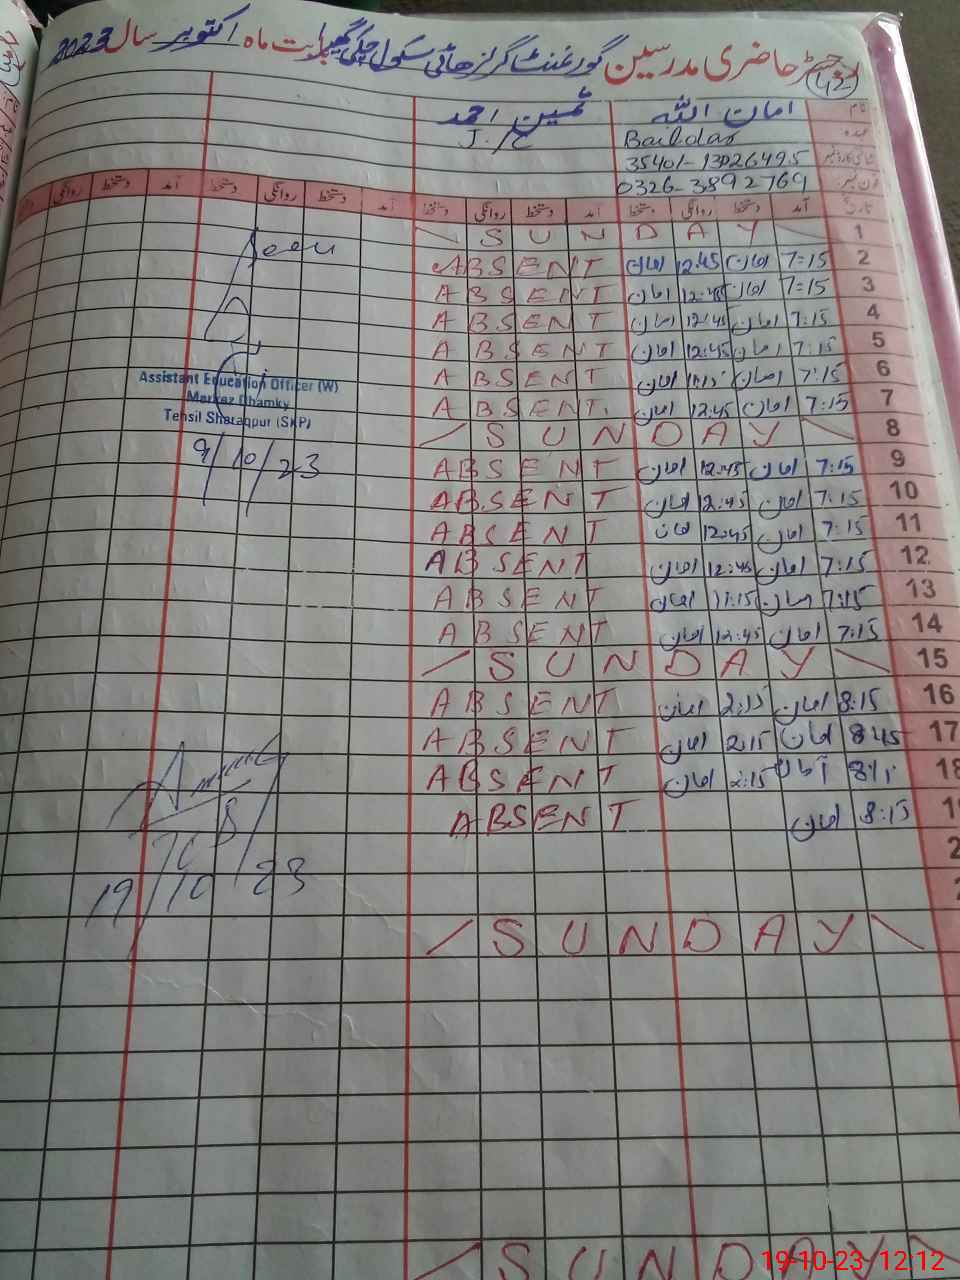 رجسٹر حاضری مدرسین گورنمنٹ گرلز ہائی سکول چکی گھیرا بابت ماہ اکتوبر سال 2023
42
نام امان اللہ ثمین احمد
عہدہ Baildar J/C
شناختی کارڈ نمبر 35401-1302649-5
فون نمبر 0326-3892769
تاریخ آمد دستخط روانگی دستخط آمد دستخط روانگی دستخط آمد دستخط روانگی دستخط آمد دستخط روانگی
1 SUNDAY
2 7:15 امان 12:45 امان ABSENT
3 7:15 امان 12:45 امان ABSENT
4 7:15 امان 12:45 امان ABSENT
5 7:15 امان 12:45 امان ABSENT
6 7:15 امان 11:15 امان ABSENT
7 7:15 امان 12:45 امان ABSENT
8 SUNDAY
9 7:15 امان 12:45 امان ABSENT
10 7:15 امان 12:45 امان ABSENT
11 7:15 امان 12:45 امان ABSENT
12 7:15 امان 12:45 امان ABSENT
13 7:15 امان 11:15 امان ABSENT
14 7:15 امان 12:45 امان ABSENT
15 SUNDAY
16 8:15 امان 2:15 امان ABSENT
17 8:45 امان 2:15 امان ABSENT
18 امان 2:15 امان ABSENT
8:15 امان ABSENT
SUNDAY
SUNDAY
Assistant Education Officer (W)
Markaz Dhamky
Tehsil Sharaqpur (SKP)
9/10/23
19/10/23
19-10-23 12:12